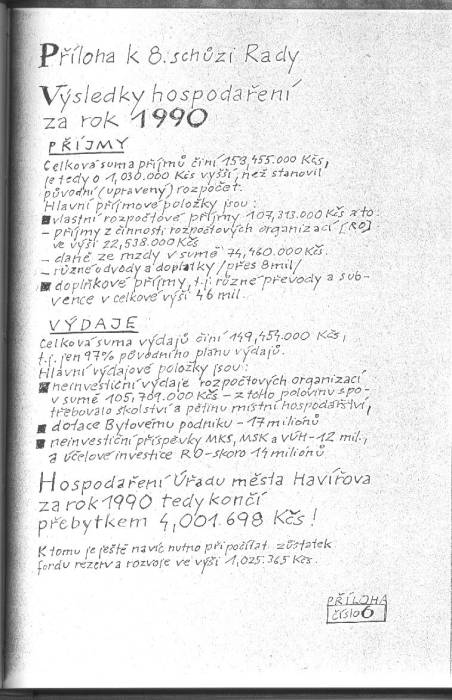 Příloha k 8. schůzi Rady
Výsledky hospodaření
za rok 1990
PŘÍJMY
Celková suma příjmů činí 153,455.000 Kčs,
je tedy o 1,030.000 Kčs vyšší, než stanovil
původní (upravený) rozpočet.
Hlavní příjmové položky jsou:
vlastní rozpočtové příjmy 107,313.000 Kčs a to:
- příjmy z činnosti rozpočtových organizací [RO]
ve výši 22,538.000 Kčs
- daně ze mzdy v sumě 74,460.000 Kčs.
- různé odvody a doplatky /přes 8 mil/
doplňkové příjmy, t.j. různé převody a sub-
vence v celkové výši 46 mil.
VÝDAJE
Celková suma výdajů činí 149,454.000 Kčs,
t.j. jen 97% původního plánu výdajů.
Hlavní výdajové položky jsou:
neinvestiční výdaje rozpočtových organizací
v sumě 105,709.000 Kčs - z toho polovinu spo-
třebovalo školství a pětinu místní hospodářství,
dotace Bytovému podniku - 17 milionů
neinvestiční příspěvky MKS, MSK a VÚH - 12 mil.,
a účelové investice RO - skoro 14 milionů
Hospodaření Úřadu města Havířova
za rok 1990 tedy končí
přebytkem 4,001.698 Kčs!
K tomu je ještě navíc nutno připočítat zůstatek
fondu rezerv a rozvoje ve výši 1,025.365 Kčs.
PŘÍLOHA
číslo 6